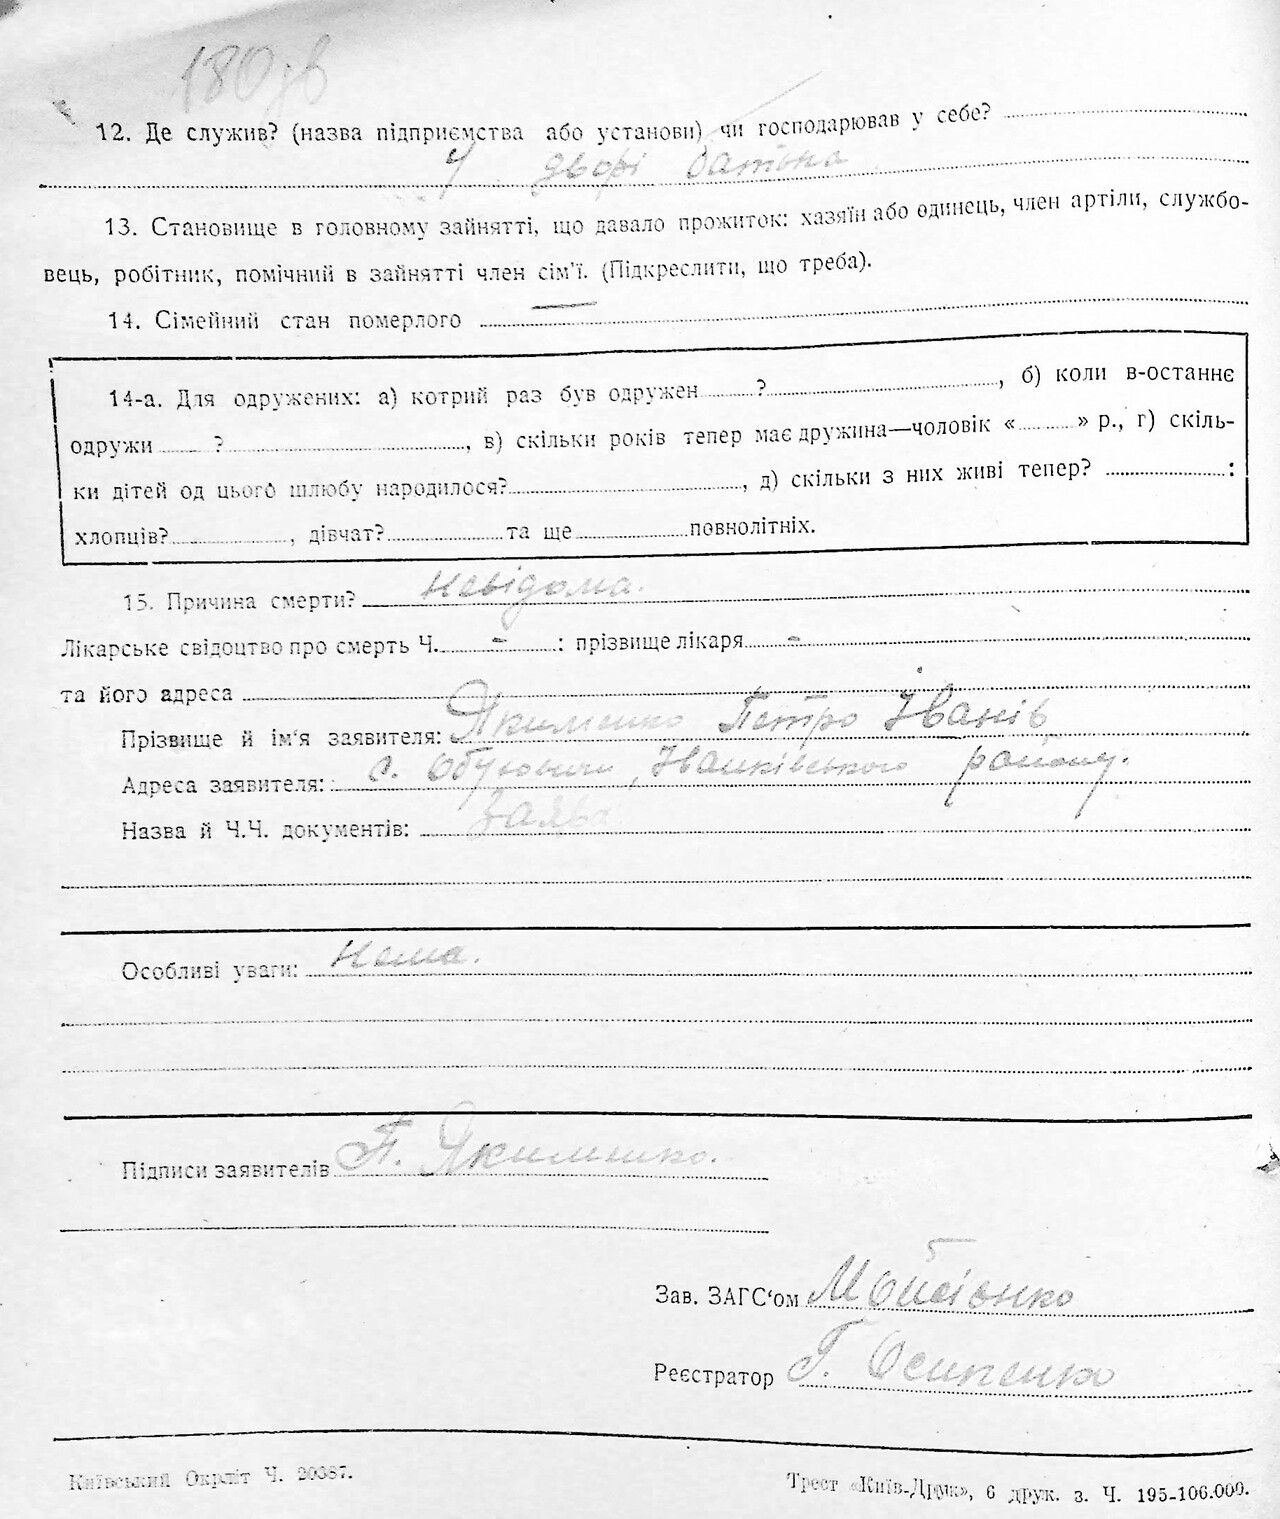 180 зв
12. Де служив? (назва підприємства або установи) чи господарював у себе?
У дворі батька
13. Становище в головному зайнятті, що давало прожиток: хазяїн або одинець, член артіли, службо-
вець, робітник, помічний в зайнятті член сім'ї. (Підкреслити, що треба).
14. Сімейний стан померлого —
14-а. Для одружених: а) котрий раз був одружен ?, б) коли в-останнє
одружи ?, в) скільки років тепер має дружина—чоловік « » р., г) скіль-
ки дітей од цього шлюбу народилося?, д) скільки з них живі тепер? :
хлопців?, дівчат? та ще повнолітніх.
15. Причина смерти? Невідома.
Лікарське свідоцтво про смерть Ч. - : прізвище лікаря -
та його адреса
Прізвище й ім'я заявителя: Якименко Петро Іванів
Адреса заявителя: с. Обуховичі, Іванківського району.
Назва й Ч.Ч. документів: Заява
Особливі уваги: Нема.
Підписи заявителів П. Якименко.
Зав. ЗАГС'ом Мойсієнко
Реєстратор Г. Осипенко
Київський Окрліт Ч. 20387.
Трест «Київ-Друк», 6 друк. з. Ч. 195-106.000.